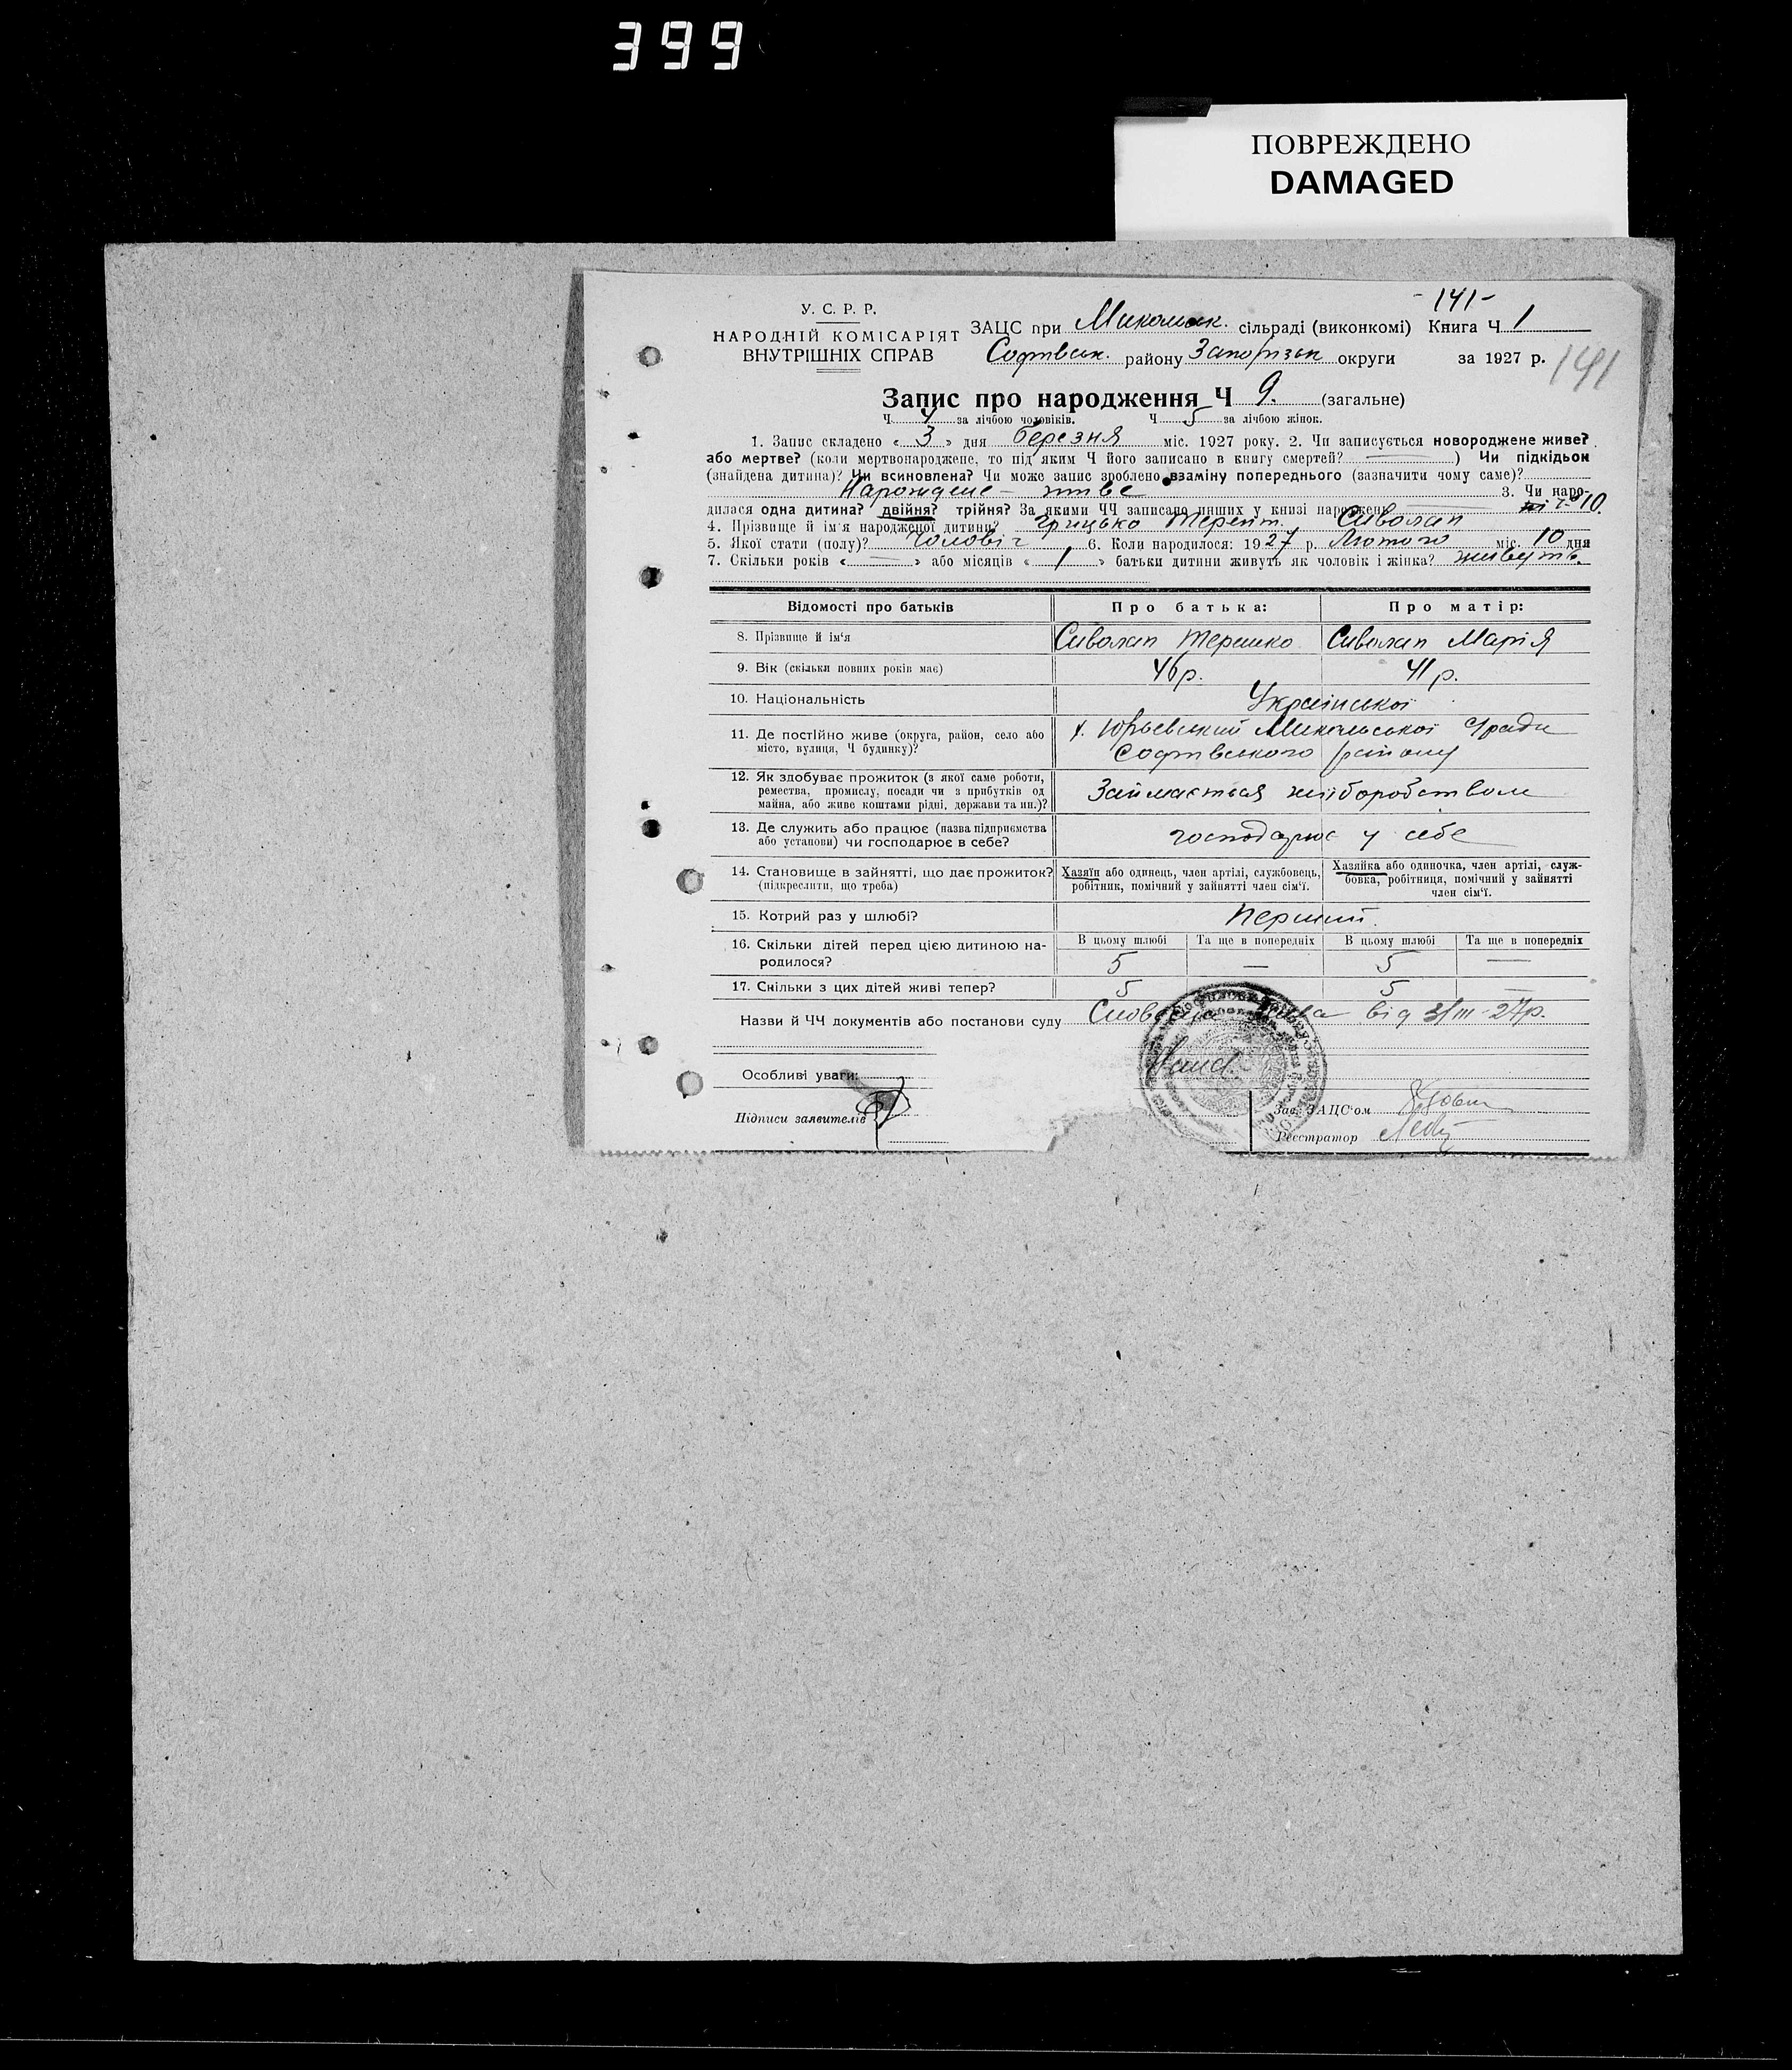 399
ПОВРЕЖДЕНО
DAMAGED
-141-
У. С. Р. Р.
НАРОДНІЙ КОМІСАРІЯТ
ВНУТРІШНІХ СПРАВ
ЗАЦС при Микольск. сільраді (виконкомі) Книга Ч 1
Софївськ. району Запорізьк округи за 1927 р.
141
Запис про народження Ч 9. (загальне)
Ч 4 за лічбою чоловіків. Ч 5 за лічбою жінок.
1. Запис складено « 3 » дня березня міс. 1927 року. 2. Чи записується новороджене живе?
або мертве? (коли мертвонароджене, то під яким Ч його записано в книгу смертей? — ) Чи підкідьок
(знайдена дитина)? Чи всиновлена? Чи може запис зроблено взаміну попереднього (зазначити чому саме)?
Народжене - живе 3. Чи наро-
дилася одна дитина? двійня? трійня? За якими ЧЧ записано инших у книзі народжень 10.
4. Прізвище й ім'я народженої дитини? Грицько Терент. Сиволап
5. Якої стати (полу)? Чоловіч 6. Коли народилося: 1927 р. Лютого міс. 10 дня
7. Скільки років « — » або місяців « 1 » батьки дитини живуть як чоловік і жінка? живуть.
Відомості про батьків Про батька: Про матір:
8. Прізвище й ім'я Сиволап Терешко Сиволап Марія
9. Вік (скільки повних років має) 46 р. 41 р.
10. Національність Української
11. Де постійно живе (округа, район, село або
місто, вулиця, Ч будинку)?
х. Юрьевський Микольської С/ради
Софївського району
12. Як здобуває прожиток (з якої саме роботи,
ремества, промислу, посади чи з прибутків од
майна, або живе коштами рідні, держави та ин.)?
Займається хліборобством
13. Де служить або працює (назва підприємства
або установи) чи господарює в себе?
господарює у себе
14. Становище в зайнятті, що дає прожиток?
(підкреслити, що треба)
Хазяїн або одинець, член артілі, службовець,
робітник, помічний у зайнятті член сім'ї.
Хазяйка або одиночка, член артілі, служ-
бовка, робітниця, помічний у зайнятті
член сім'ї.
15. Котрий раз у шлюбі? Перший.
16. Скільки дітей перед цією дитиною на-
родилося?
В цьому шлюбі Та ще в попередніх В цьому шлюбі Та ще в попередніх
5 — 5 —
17. Скільки з цих дітей живі тепер? 5 5 —
Назви й ЧЧ документів або постанови суду від 3/III-27р.
Особливі уваги:
Підписи заявителів
Зав. ЗАЦС'ом
Реєстратор